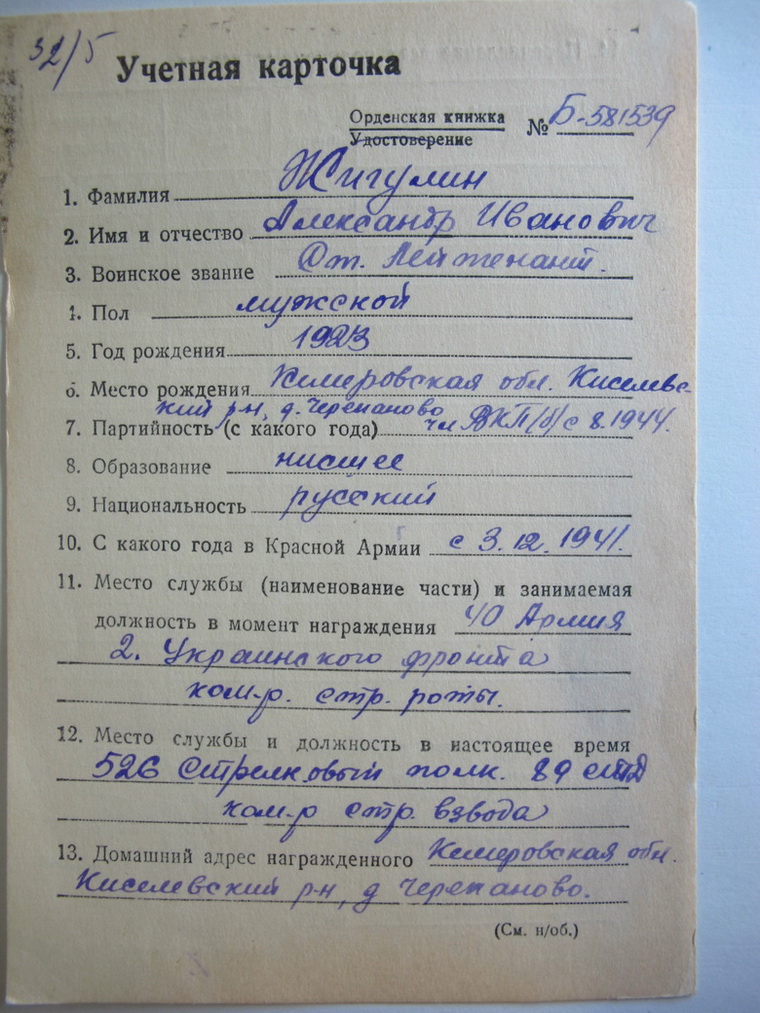 32/5
Учетная карточка
Орденская книжка
Удостоверение
№ Б-581539
1. Фамилия Жигулин
2. Имя и отчество Александр Иванович
3. Воинское звание Ст. Лейтенант.
4. Пол мужской
5. Год рождения 1923
6. Место рождения Кемеровская обл. Киселевс-
кий р-н, д. Черепаново
7. Партийность (с какого года) чл ВКП/б/ с 8.1944.
8. Образование нисшее
9. Национальность русский
10. С какого года в Красной Армии с 3.12.1941.
11. Место службы (наименование части) и занимаемая
должность в момент награждения 40 Армия
2. Украинского фронта
ком-р. стр. роты.
12. Место службы и должность в настоящее время
526 Стрелковый полк. 89
ком-р стр. взвода
13. Домашний адрес награжденного Кемеровская обл.
Киселевский р-н, д Черепаново.
(См. н/об.)